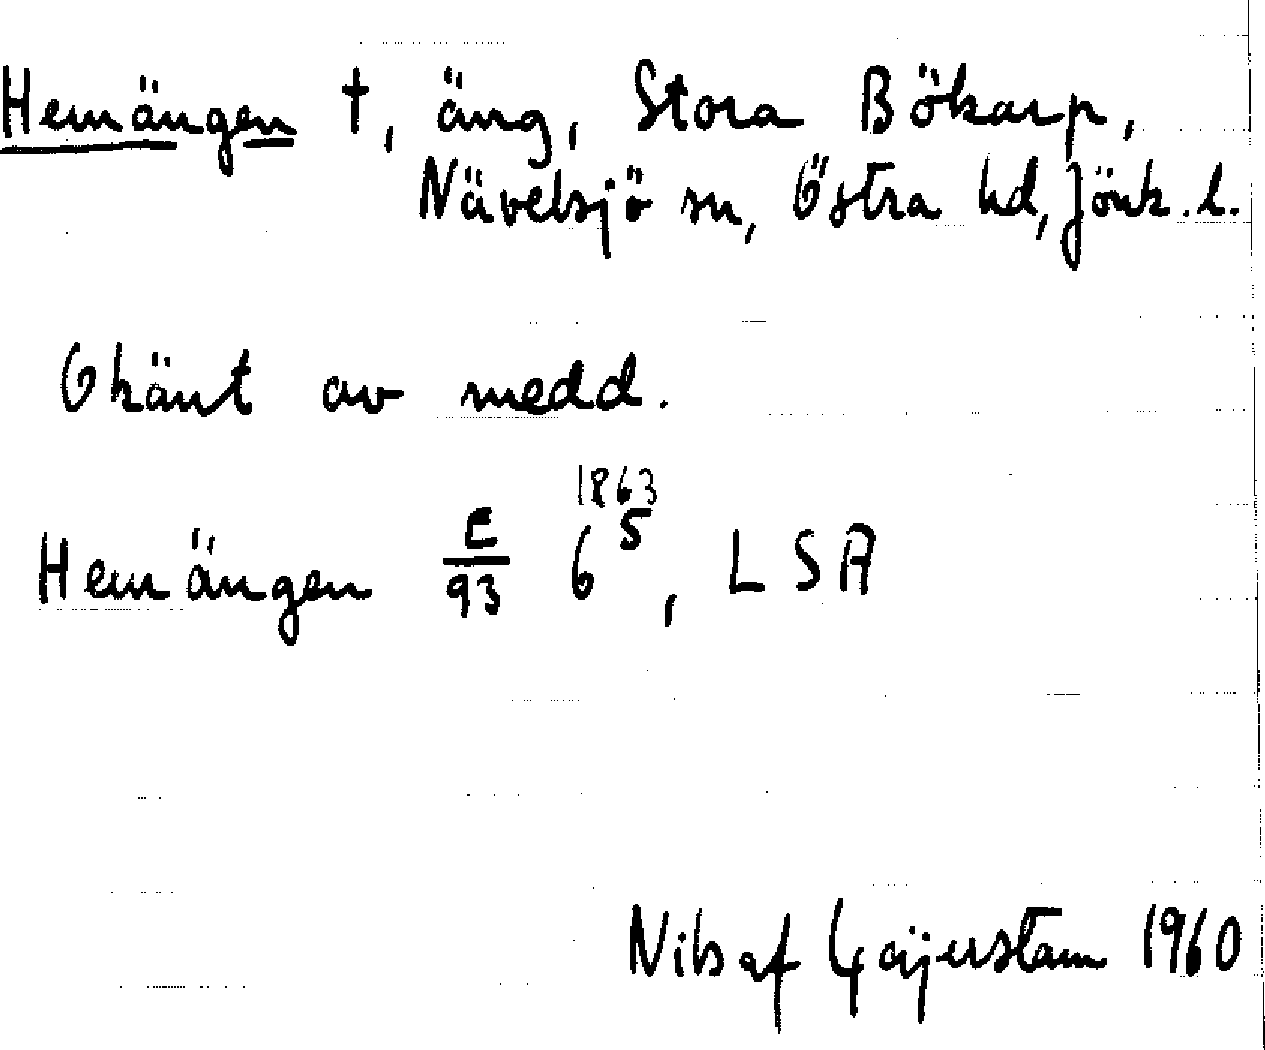 Hemängen †, äng, Stora Bökarp,
Nävelsjö sn, Östra hd, Jönk. l.
Okänt av medd.
1863
Hemängen E/93 6⁵, LSA
Nils af Geijerstam 1960